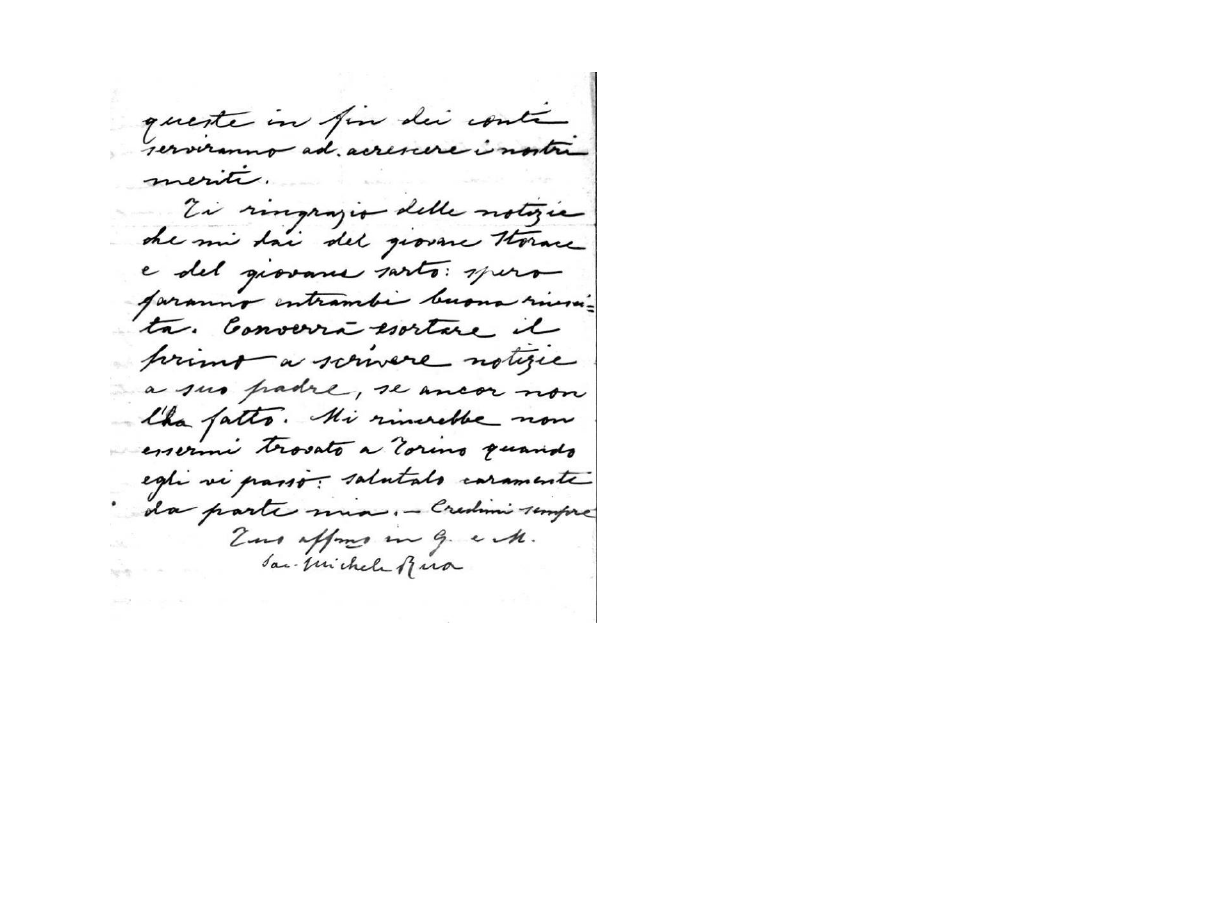 queste in fin dei conti
serviranno ad acrescere i nostri
meriti.
Ti ringrazio delle notizie
che mi dai del giovane Storace
e del giovane sarto: spero
faranno entrambi buona riusci=
ta. Converrà esortare il
primo a scrivere notizie
a suo padre, se ancor non
l'ha fatto. Mi rincrebbe non
essermi trovato a Torino quando
egli vi passò: salutalo caramente
da parte mia. – Credimi sempre
Tuo affmo in G. e M.
Sac. Michele Rua